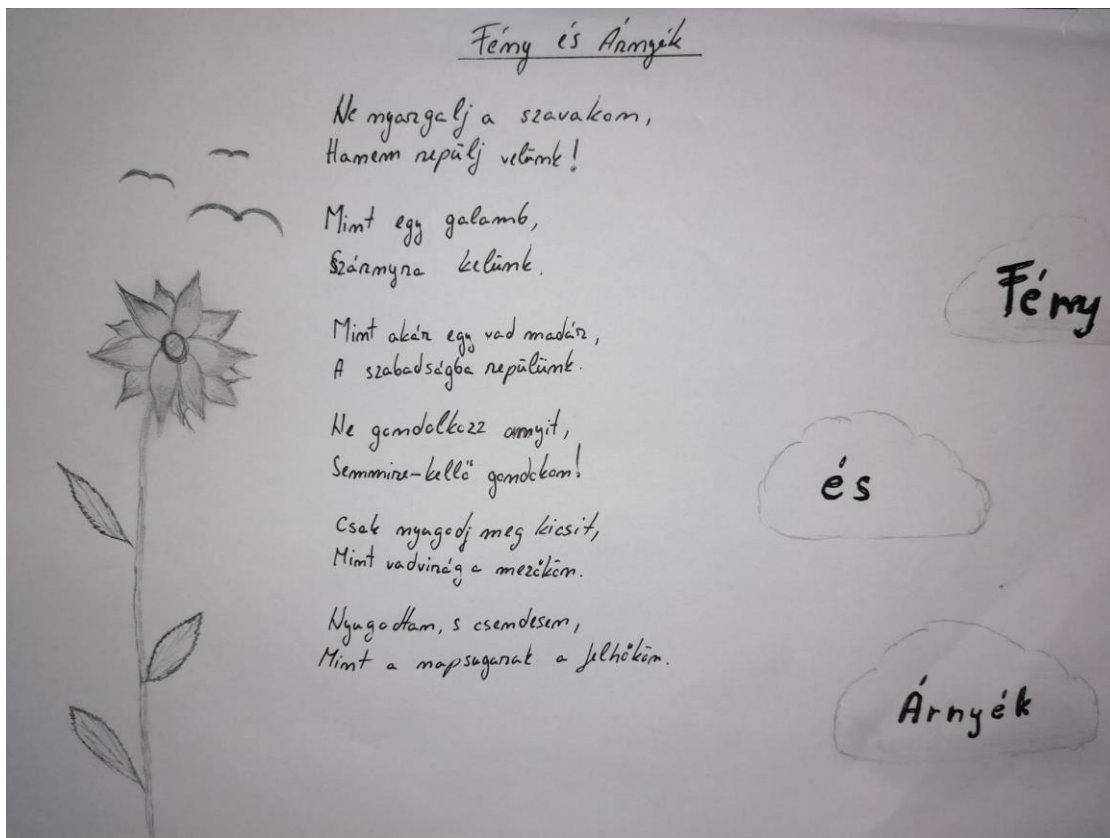 Fény és Árnyék
Ne nyargalj a szavakon,
Hanem repülj velünk!
Mint egy galamb,
Szárnyra kelünk.
Mint akár egy vad madár,
A szabadságba repülünk.
Ne gondolkozz annyit,
Semmire-kellő gondokon!
Csak nyugodj meg kicsit,
Mint vadvirág a mezőkön.
Nyugodtan, s csendesen,
Mint a napsugarak a felhőkön.
Fény
és
Árnyék